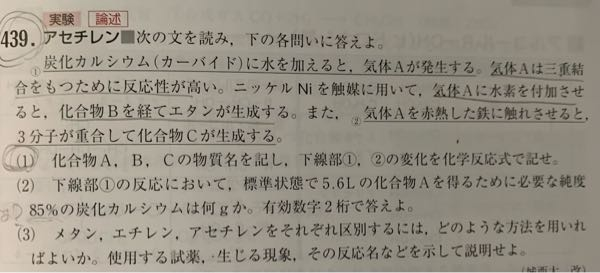 実験 論述
439. アセチレン■次の文を読み，下の各問いに答えよ。
①炭化カルシウム(カーバイド)に水を加えると，気体Aが発生する。気体Aは三重結
合をもつために反応性が高い。ニッケルNiを触媒に用いて，気体Aに水素を付加させ
ると，化合物Bを経てエタンが生成する。また，②気体Aを赤熱した鉄に触れさせると，
3分子が重合して化合物Cが生成する。
(1) 化合物A，B，Cの物質名を記し，下線部①，②の変化を化学反応式で記せ。
(2) 下線部①の反応において，標準状態で5.6Lの化合物Aを得るために必要な純度
85%の炭化カルシウムは何gか。有効数字2桁で答えよ。
(3) メタン，エチレン，アセチレンをそれぞれ区別するには，どのような方法を用いれ
ばよいか。使用する試薬，生じる現象，その反応名などを示して説明せよ。
(城西大 改)